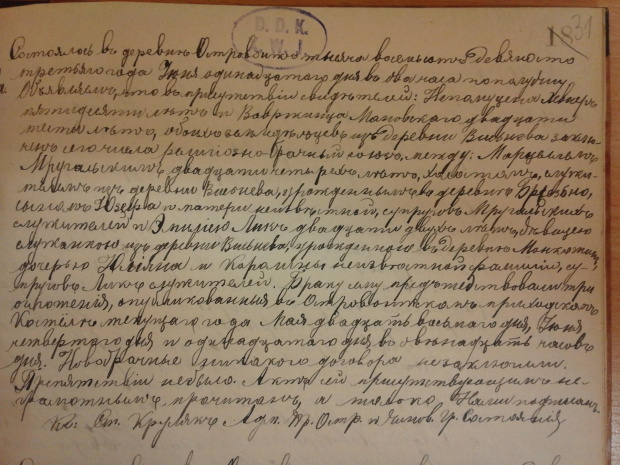 D. D. K.
W. J.
31
Состоялось въ деревнѣ Островитѣ тысяча восемьсотъ девяносто
третьяго года Іюня одинадцатаго дня въ два часа пополудни
Объявляемъ, что въ присутствіи свидѣтелей: Непомуцена
пятидесяти лѣтъ и Вавржинца Мановскаго двадцати
лѣтъ, обоихъ изъ деревни Вишнева заклю-
ченъ сего числа религіозно-брачный союзъ между: Марцеллемъ
Мругальскимъ двадцати четырехъ лѣтъ, холостымъ, служи-
телемъ изъ деревни Вишнева, а рожденнымъ въ деревнѣ
сыномъ Юзефа и матери неизвѣстной, супруговъ Мругальскихъ
служителей и Эмиліею Ликъ двадцати двухъ лѣтъ, дѣвицею
служанкою изъ деревни Вишнева, а рожденною въ деревнѣ
дочерью Юліяна и Каролины неизвѣстной фамиліи, су-
пруговъ Ликъ служителей. Браку сему предъшествовали три
оглашенія, опубликованныя въ Островитскомъ приходскомъ
костелѣ текущаго года Мая двадцать восьмаго дня, Іюня
четвертаго дня и одинадцатаго дня въ двѣнадцать часовъ
дня. Новобрачные никакого договора незаключили.
Препятствій небыло. Актъ сей присутствующимъ не-
грамотнымъ, прочитанъ, а только Нами подписанъ.
Кс. Ст. Круликъ Адм. Пр. Остр. и чинов. Гр. Состоянія